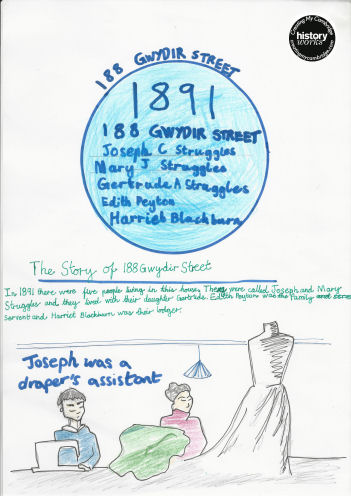 Creating My Cambridge
history
works
creatingmycambridge.com
188 GWYDIR STREET
1891
188 GWYDIR STREET
Joseph C Struggles
Mary J Struggles
Gertrude A Struggles
Edith Peyton
Harriet Blackburn
The Story of 188 Gwydir Street
In 1891 there were five people living in this house. They were called Joseph and Mary
Struggles and they lived with their daughter Gertrude. Edith Peyton was the family
Servent and Harriet Blackburn was their lodger.
Joseph was a
draper's assistant